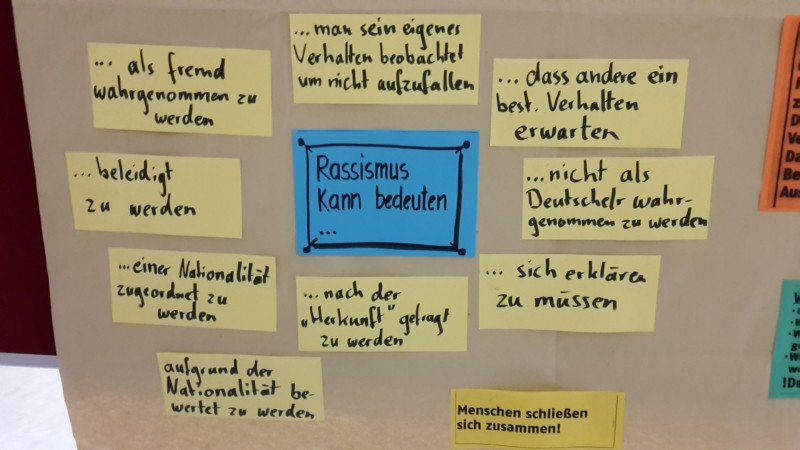 ... man sein eigenes
Verhalten beobachtet
um nicht aufzufallen
... als fremd
wahrgenommen zu
werden
... dass andere ein
best. Verhalten
erwarten
Rassismus
kann bedeuten
...
... beleidigt
zu werden
... nicht als
Deutsche/r wahr-
genommen zu werden
... einer Nationalität
zugeordnet zu
werden
... nach der
„Herkunft" gefragt
zu werden
... sich erklären
zu müssen
aufgrund der
Nationalität be-
wertet zu werden
Menschen schließen
sich zusammen!